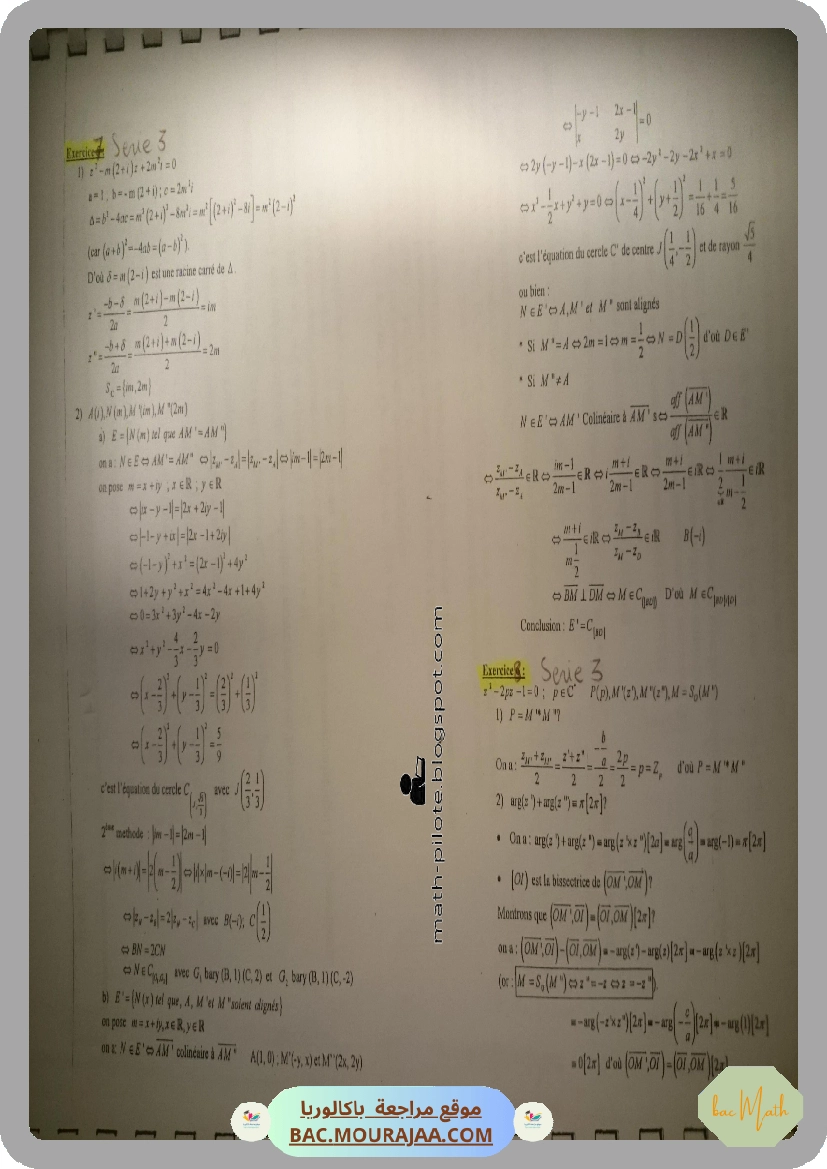 Exercice 7: Serie 3
1) z² − m(2+i)z + 2m²i = 0
a = 1 , b = −m(2+i) ; c = 2m²i
Δ = b² − 4ac = m²(2+i)² − 8m²i = m²[(2+i)² − 8i] = m²(2−i)²
(car (a+b)² − 4ab = (a−b)²).
D'où δ = m(2−i) est une racine carré de Δ.
z' = (−b−δ)/2a = (m(2+i) − m(2−i))/2 = im
z" = (−b+δ)/2a = (m(2+i) + m(2−i))/2 = 2m
S_C = {im, 2m}
2) A(i), N(m), M'(im), M"(2m)
a) E = {N(m) tel que AM' = AM"}
on a : N∈E ⇔ AM' = AM" ⇔ |z_M' − z_A| = |z_M" − z_A| ⇔ |im−1| = |2m−1|
on pose m = x+iy , x∈ℝ ; y∈ℝ
⇔ |ix − y − 1| = |2x + 2iy − 1|
⇔ |−1 − y + ix| = |2x − 1 + 2iy|
⇔ (−1−y)² + x² = (2x−1)² + 4y²
⇔ 1 + 2y + y² + x² = 4x² − 4x + 1 + 4y²
⇔ 0 = 3x² + 3y² − 4x − 2y
⇔ x² + y² − 4/3 x − 2/3 y = 0
⇔ (x − 2/3)² + (y − 1/3)² = (2/3)² + (1/3)²
⇔ (x − 2/3)² + (y − 1/3)² = 5/9
c'est l'équation du cercle C(J, √5/3) avec J(2/3, 1/3)
2ème methode : |im−1| = |2m−1|
⇔ |i(m+i)| = |2(m − 1/2)| ⇔ |i|×|m−(−i)| = |2||m − 1/2|
⇔ |z_N − z_B| = 2|z_N − z_C| avec B(−i); C(1/2)
⇔ BN = 2CN
⇔ N∈C[G₁G₂] avec G₁ bary (B, 1) (C, 2) et G₂ bary (B, 1) (C, -2)
b) E' = {N(x) tel que, A, M' et M" soient alignés}
on pose m = x+iy, x∈ℝ, y∈ℝ
on a: N∈E' ⇔ AM' colinéaire à AM" A(1, 0) ; M'(-y, x) et M''(2x, 2y)
⇔ |−y−1 2x−1|
|x 2y| = 0
⇔ 2y(−y−1) − x(2x−1) = 0 ⇔ −2y² − 2y − 2x² + x = 0
⇔ x² − 1/2 x + y² + y = 0 ⇔ (x − 1/4)² + (y + 1/2)² = 1/16 + 1/4 = 5/16
c'est l'équation du cercle C' de centre J(1/4, −1/2) et de rayon √5/4
ou bien :
N∈E' ⇔ A, M' et M" sont alignés
* Si M" = A ⇔ 2m = 1 ⇔ m = 1/2 ⇔ N = D(1/2) d'où D∈E'
* Si M" ≠ A
N∈E' ⇔ AM' Colinéaire à AM" s ⇔ aff(AM')/aff(AM") ∈ ℝ
⇔ (z_M' − z_A)/(z_M" − z_A) ∈ ℝ ⇔ (im−1)/(2m−1) ∈ ℝ ⇔ i (m+i)/(2m−1) ∈ ℝ ⇔ (m+i)/(2m−1) ∈ iℝ ⇔ 1/2 (m+i)/(m − 1/2) ∈ iℝ
⇔ (m+i)/(m 1/2) ∈ iℝ ⇔ (z_M − z_B)/(z_M − z_D) ∈ iℝ B(−i)
⇔ BM ⊥ DM ⇔ M∈C[BD] D'où M∈C[BD]\{D}
Conclusion : E' = C[BD]
Exercice 8: Serie 3
z² − 2pz − 1 = 0 ; p∈C* P(p), M'(z'), M"(z"), M = S_O(M")
1) P = M'*M"?
On a : (z_M' + z_M")/2 = (z' + z")/2 = (−b/a)/2 = 2p/2 = p = Z_p d'où P = M'*M"
2) arg(z') + arg(z") ≡ π[2π]?
• On a : arg(z') + arg(z") ≡ arg(z'×z")[2π] ≡ arg(c/a) ≡ arg(−1) ≡ π[2π]
• [OI) est la bissectrice de (OM', OM)?
Montrons que (OM', OI) ≡ (OI, OM)[2π]?
on a : (OM', OI) − (OI, OM) ≡ −arg(z') − arg(z)[2π] ≡ −arg(z'×z)[2π]
(or : M = S_O(M") ⇔ z" = −z ⇔ z = −z").
≡ −arg(−z'×z")[2π] ≡ −arg(−c/a)[2π] ≡ −arg(1)[2π]
≡ 0[2π] d'où (OM', OI) ≡ (OI, OM)[2π]
math-pilote.blogspot.com
موقع مراجعة باكالوريا
BAC.MOURAJAA.COM
bac Math